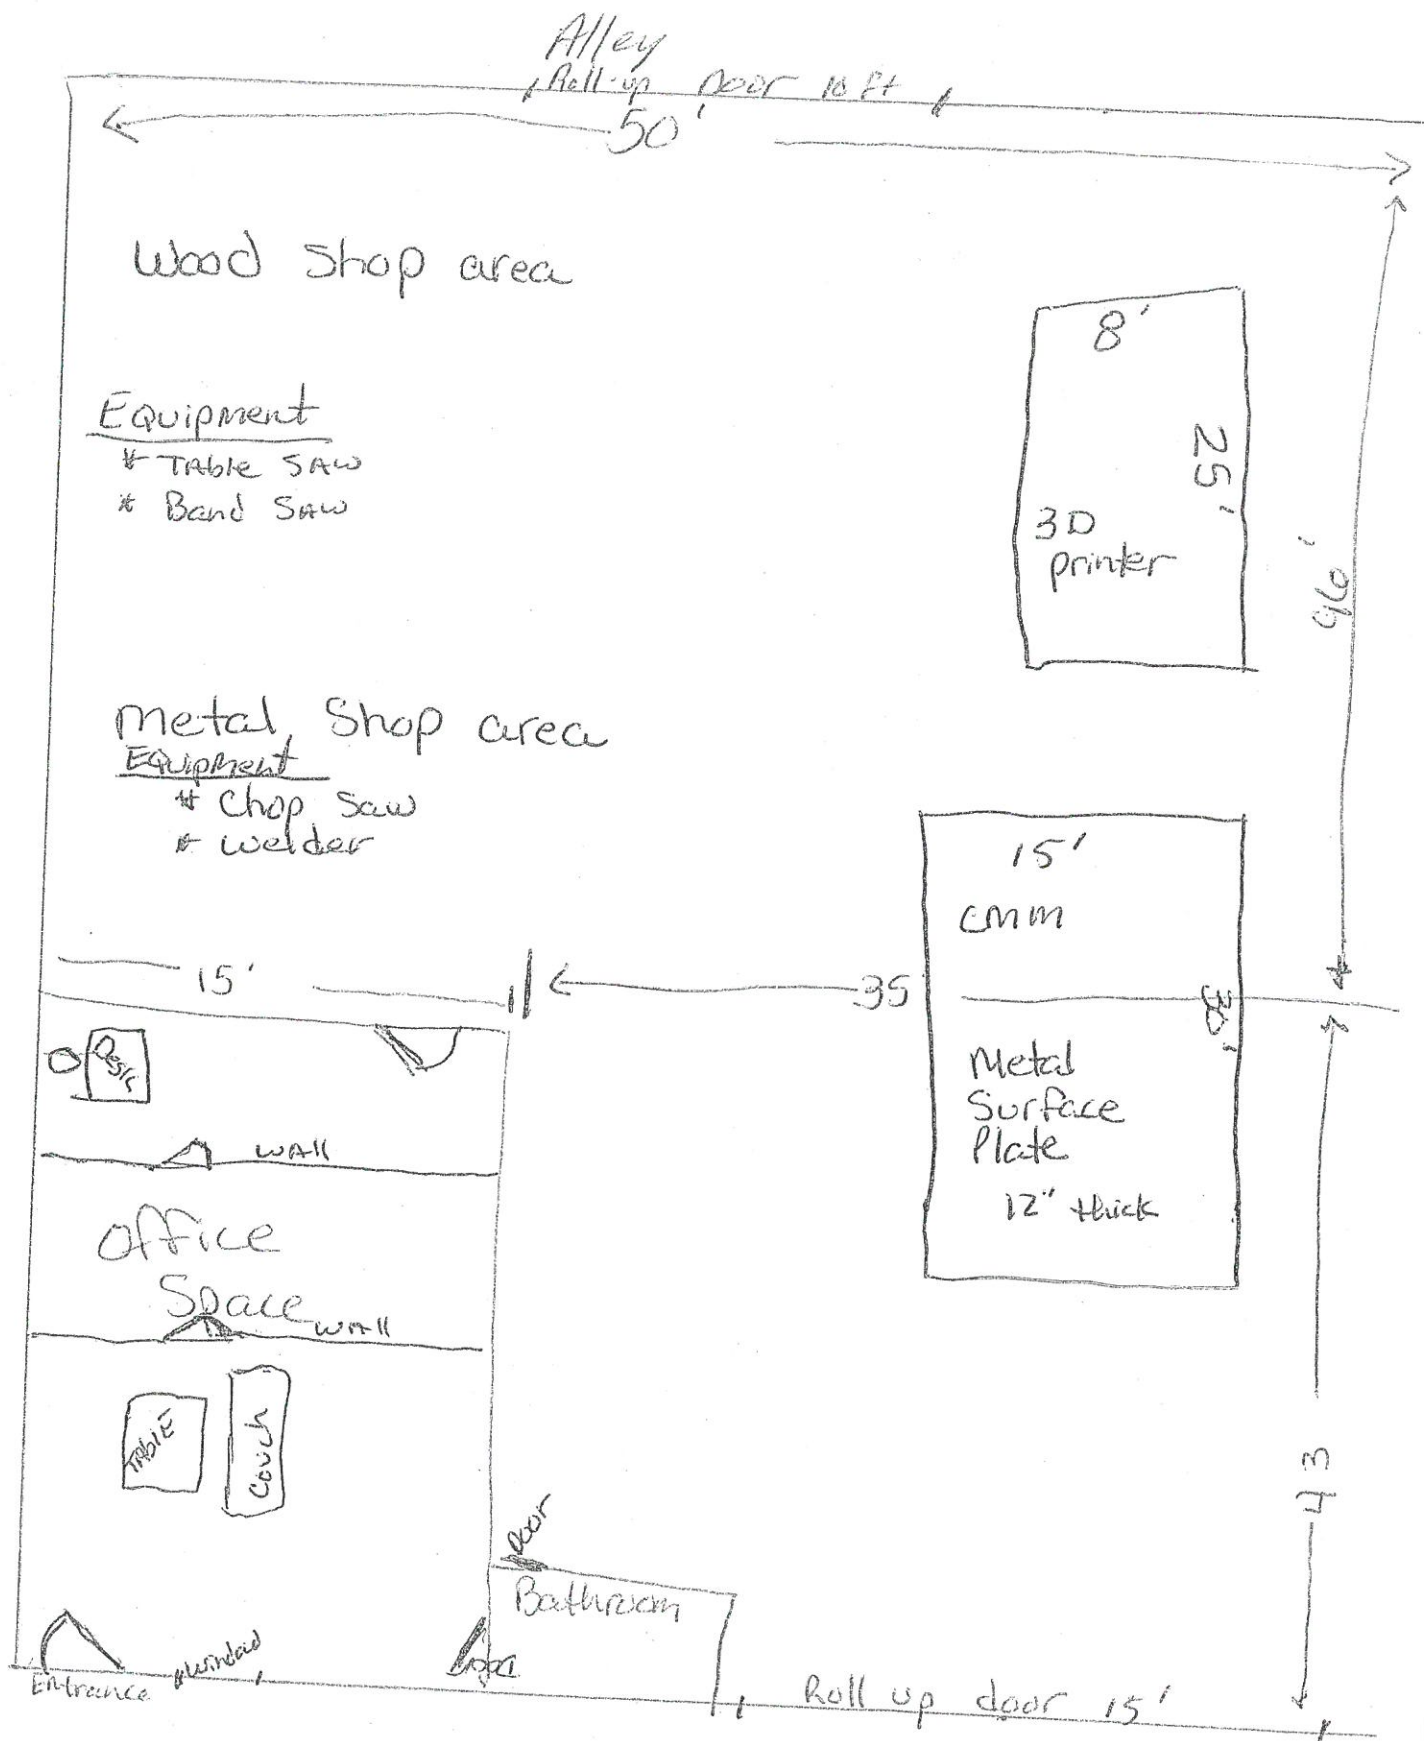 Alley
Roll-up Door 10 ft
50'
Wood Shop area
8'
25'
3D
printer
Equipment
* Table Saw
* Band Saw
Metal Shop area
Equipment
* Chop Saw
* Welder
15'
CMM
15'
35
30'
Metal
Surface
Plate
12" thick
Desk
Wall
Office
Space
Wall
Table
Couch
43
Door
Bathroom
Entrance
Window
Door
Roll up door 15'